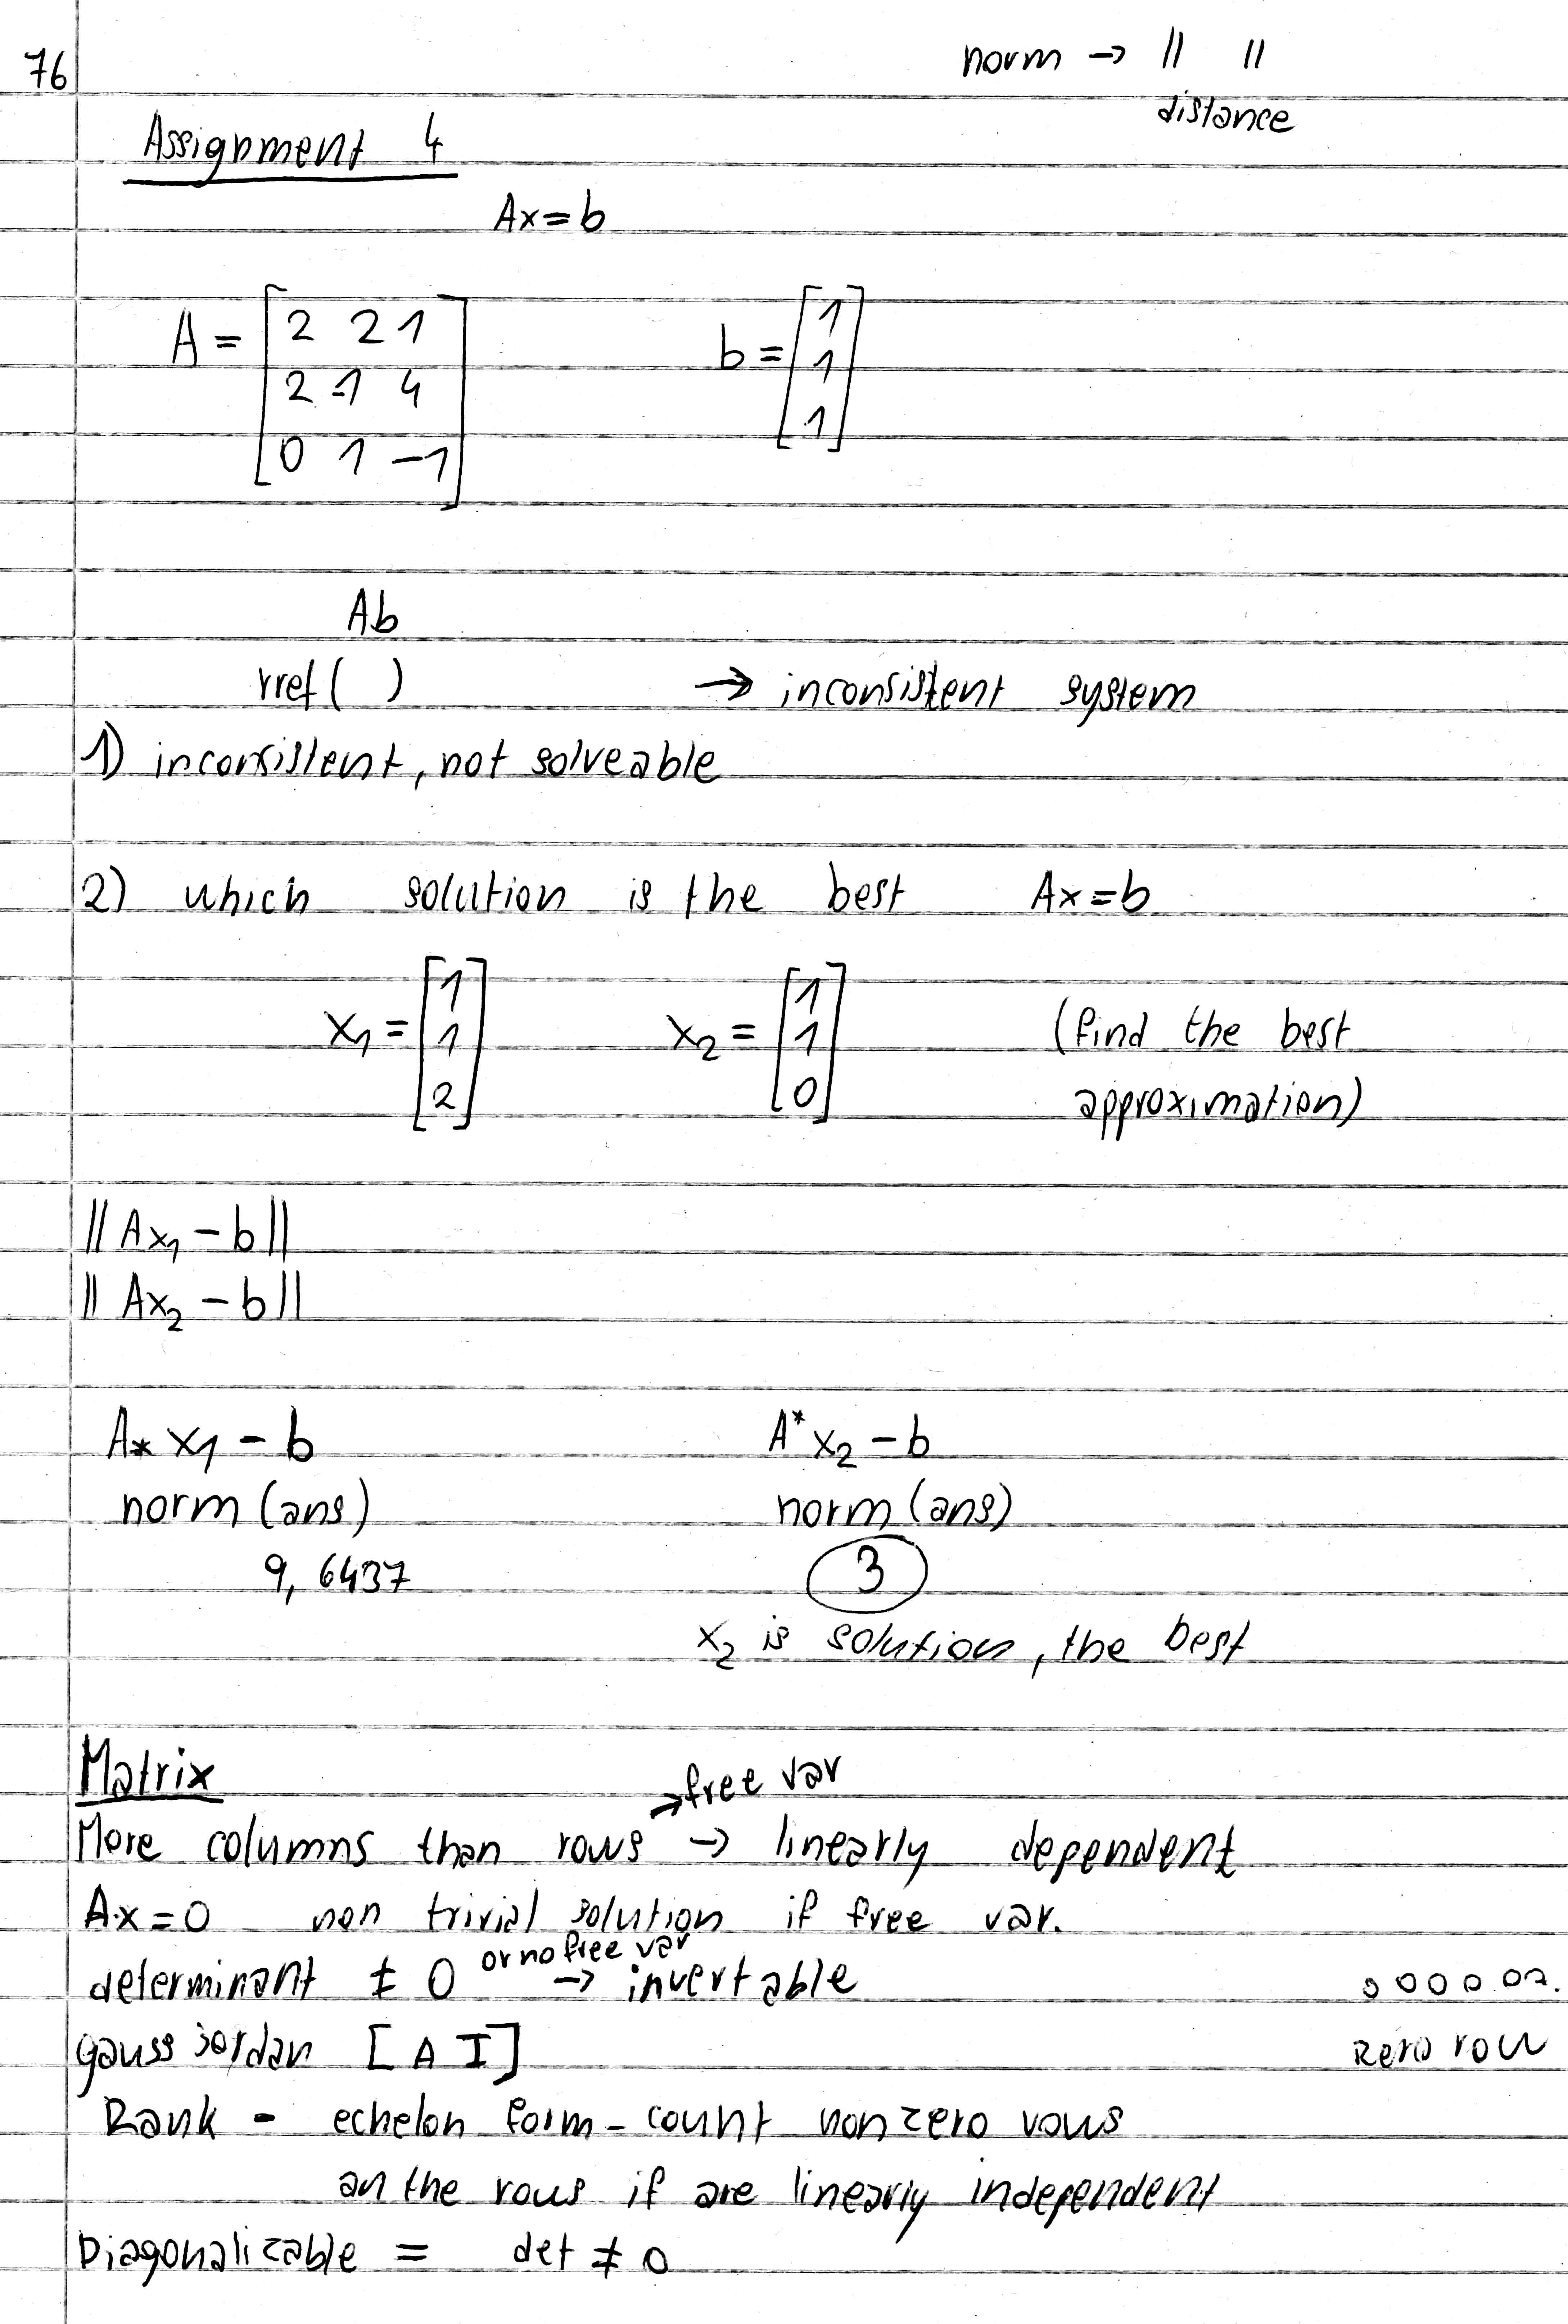 76
norm → || ||
distance
Assignment 4
Ax=b
A = [2 2 1
2 -1 4
0 1 -1]
b = [1
1
1]
Ab
rref( ) → inconsistent system
1) inconsistent, not solveable
2) which solution is the best Ax=b
x₁ = [1
1
2]
x₂ = [1
1
0]
(find the best
approximation)
|| Ax₁ - b ||
|| Ax₂ - b ||
A* x₁ - b
norm (ans)
9,6437
A* x₂ - b
norm (ans)
3
x₂ is solution, the best
Matrix
→ free var
More columns than rows → linearly dependent
Ax=0 non trivial solution if free var.
or no free var
determinant ≠ 0 → invertable
gauss jordan [A I]
zero row
Rank - echelon form - count nonzero rows
an the rows if are linearly independent
Diagonalizable = det ≠ 0